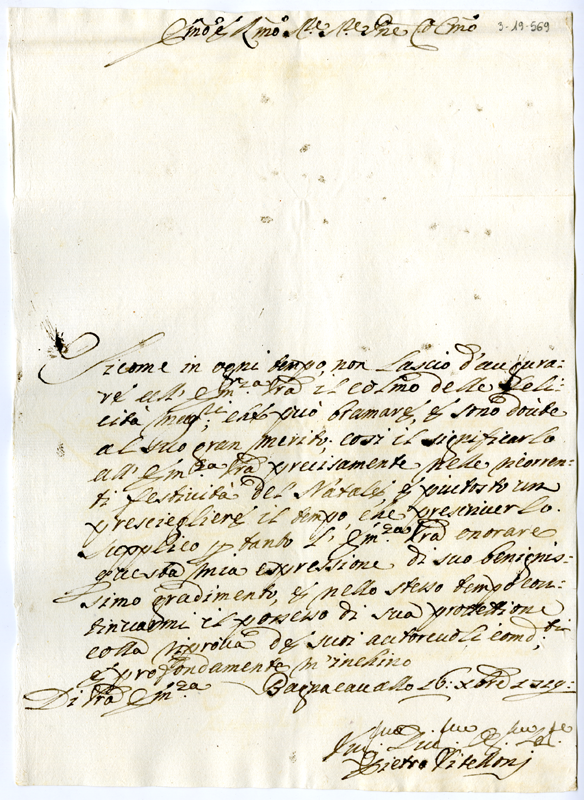 Emo e Rmo Sre Sre Pne Colmo
3-19-569
Sicome in ogni tempo non lascio d'augura-
re all' Em.za Vra il colmo delle Feli-
cità che può bramare, e sono douute
al suo gran merito, così il significarlo
all' Em.za Vra precisamente nelle ricorren-
ti festiuità del Natale, è piutosto un
presciegliere il tempo, che prescriuerlo.
Supplico p tanto l' Em.za Vra onorare
questa mia espressione di suo benignis-
simo gradimento, e nello stesso tempo con-
tinuarmi il possesso di sua protettione
colla riproua de suoi autoreuoli comd.ti
e profondamente m'inchino
Di Vra Em.za Bagnacauallo 16: Xbre 1719:
Pietro Vitellonj